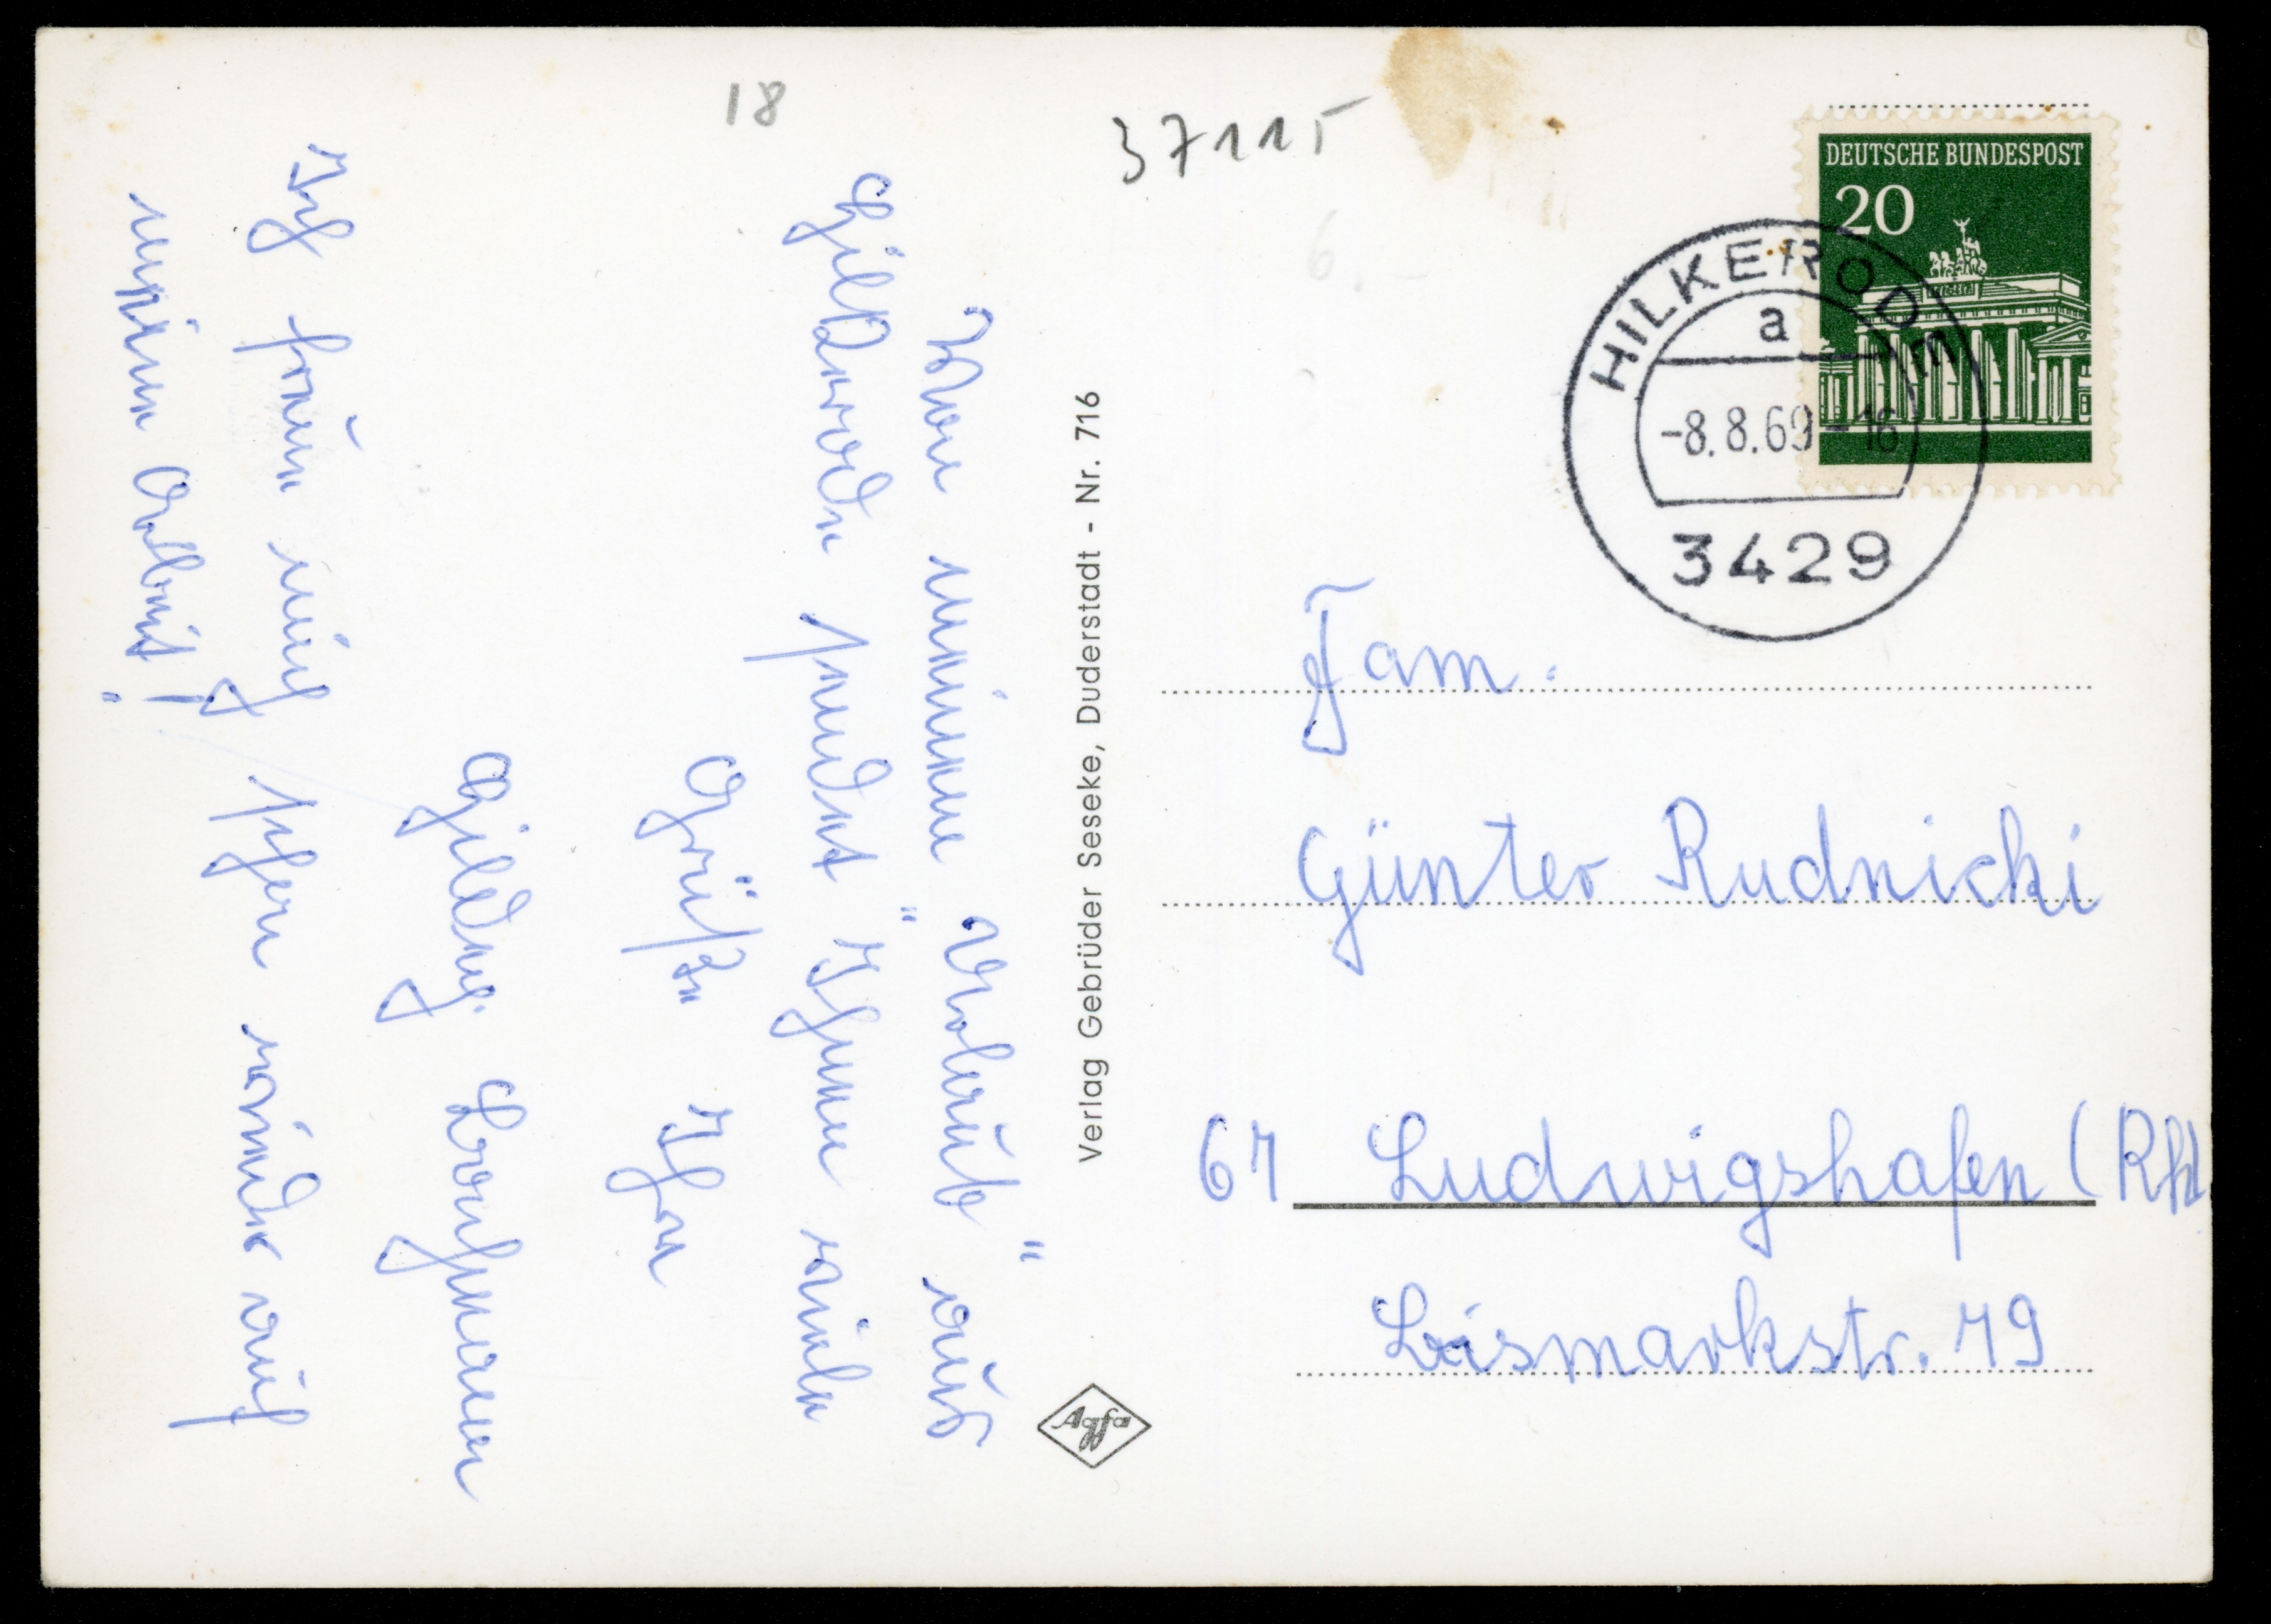 18
37115
6.-
DEUTSCHE BUNDESPOST
20
HILKERODE
a
-8.8.69-16
3429
Von meinem „Urlaub" aus
Hilkerode sendet Ihnen viele
Grüße Ihre
Hildeg.
Ich freue mich schon wieder auf
meine Arbeit!
Verlag Gebrüder Seseke, Duderstadt - Nr. 716
Agfa
Fam.
Günter Rudnicki
67 Ludwigshafen (Rh)
Bismarkstr. 79